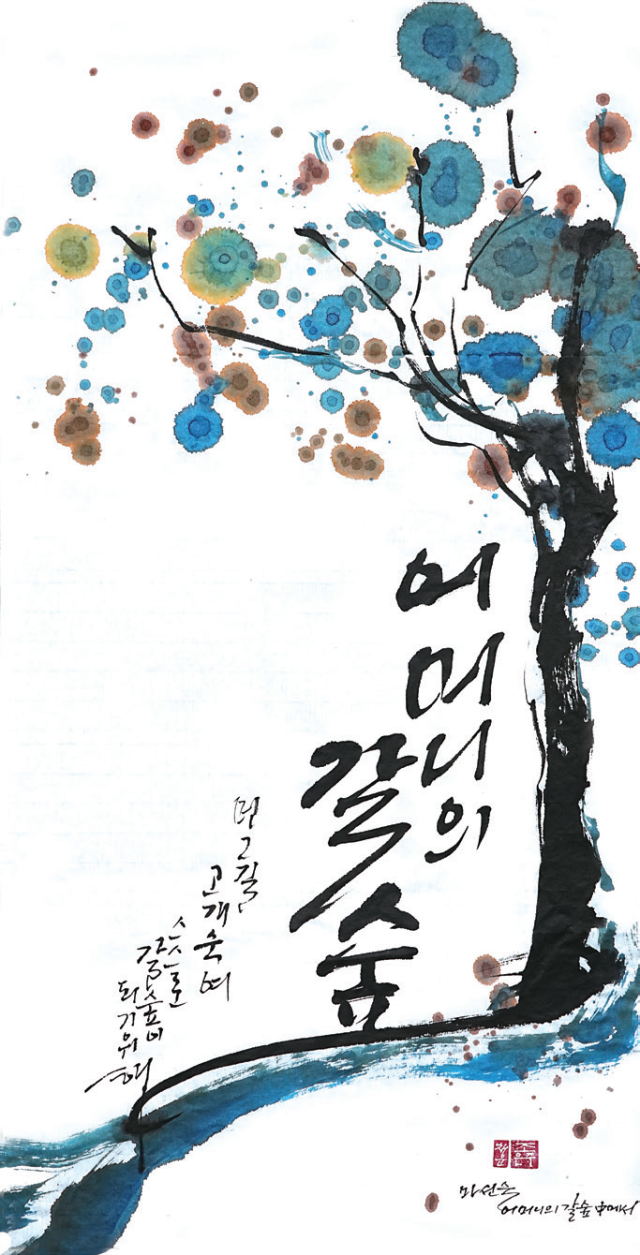 어머니의
갈숲
먼 그길
고개숙여
갈숲이
되기위해
마선숙
어머니의 갈숲 中에서